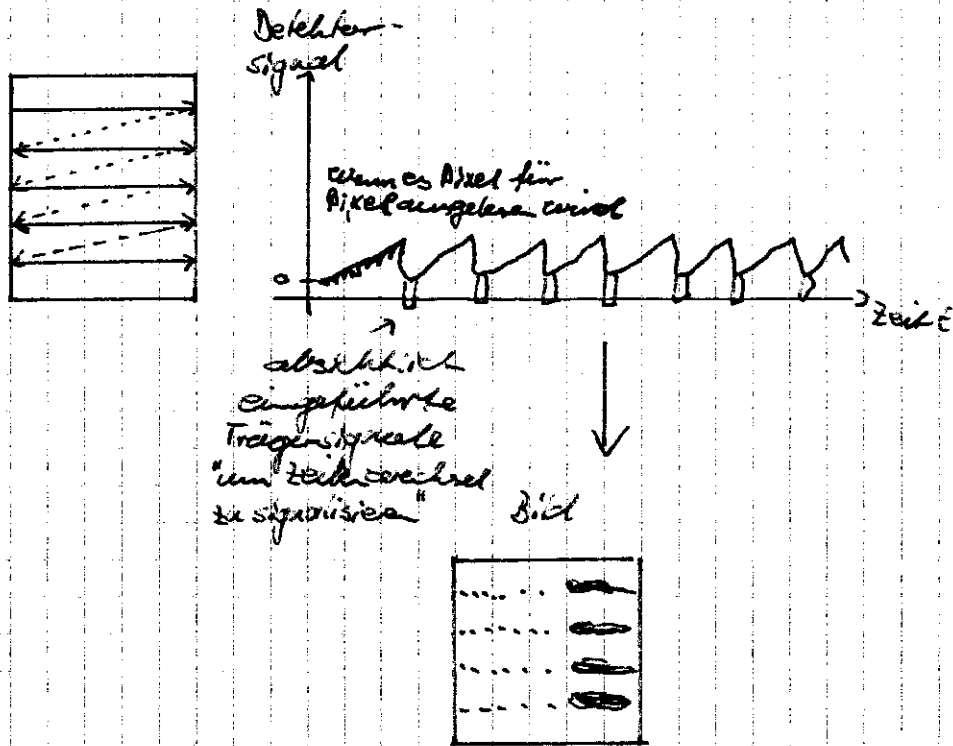 Detektor-
signal
wenn es Pixel für
Pixel ausgelesen wird
0
Zeit t
absichtlich
eingeführte
Trägersignale
"um Zeilenwechsel
zu signalisieren"
Bild